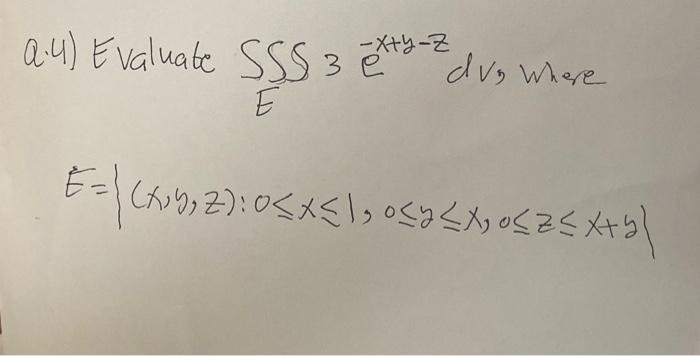 Q.4) Evaluate ∫∫∫ 3 e^{-x+y-z} dv, where
E
E = {(x,y,z): 0≤x≤1, 0≤y≤x, 0≤z≤x+y}